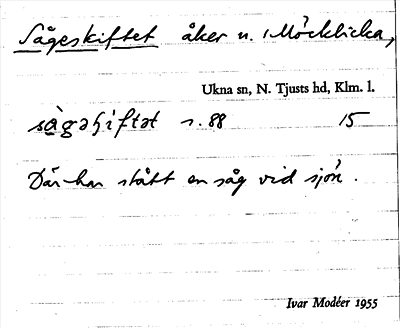 Sågeskiftet åker u. Möcklicka,
Ukna sn, N. Tjusts hd, Klm. l.
sàgəʃiftət s. 88 15
Där har stått en såg vid sjön.
Ivar Modéer 1955